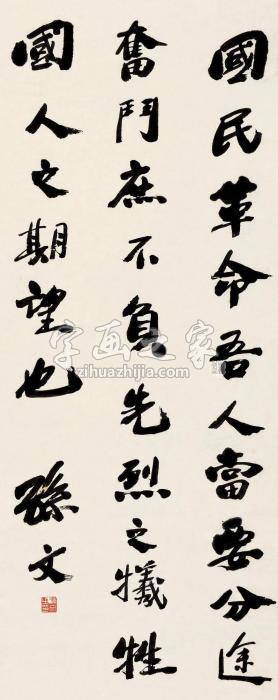 國民革命吾人當要分途
奮鬥庶不負先烈之犧牲
國人之期望也
孫文
字画之家
zihuazhijia.com